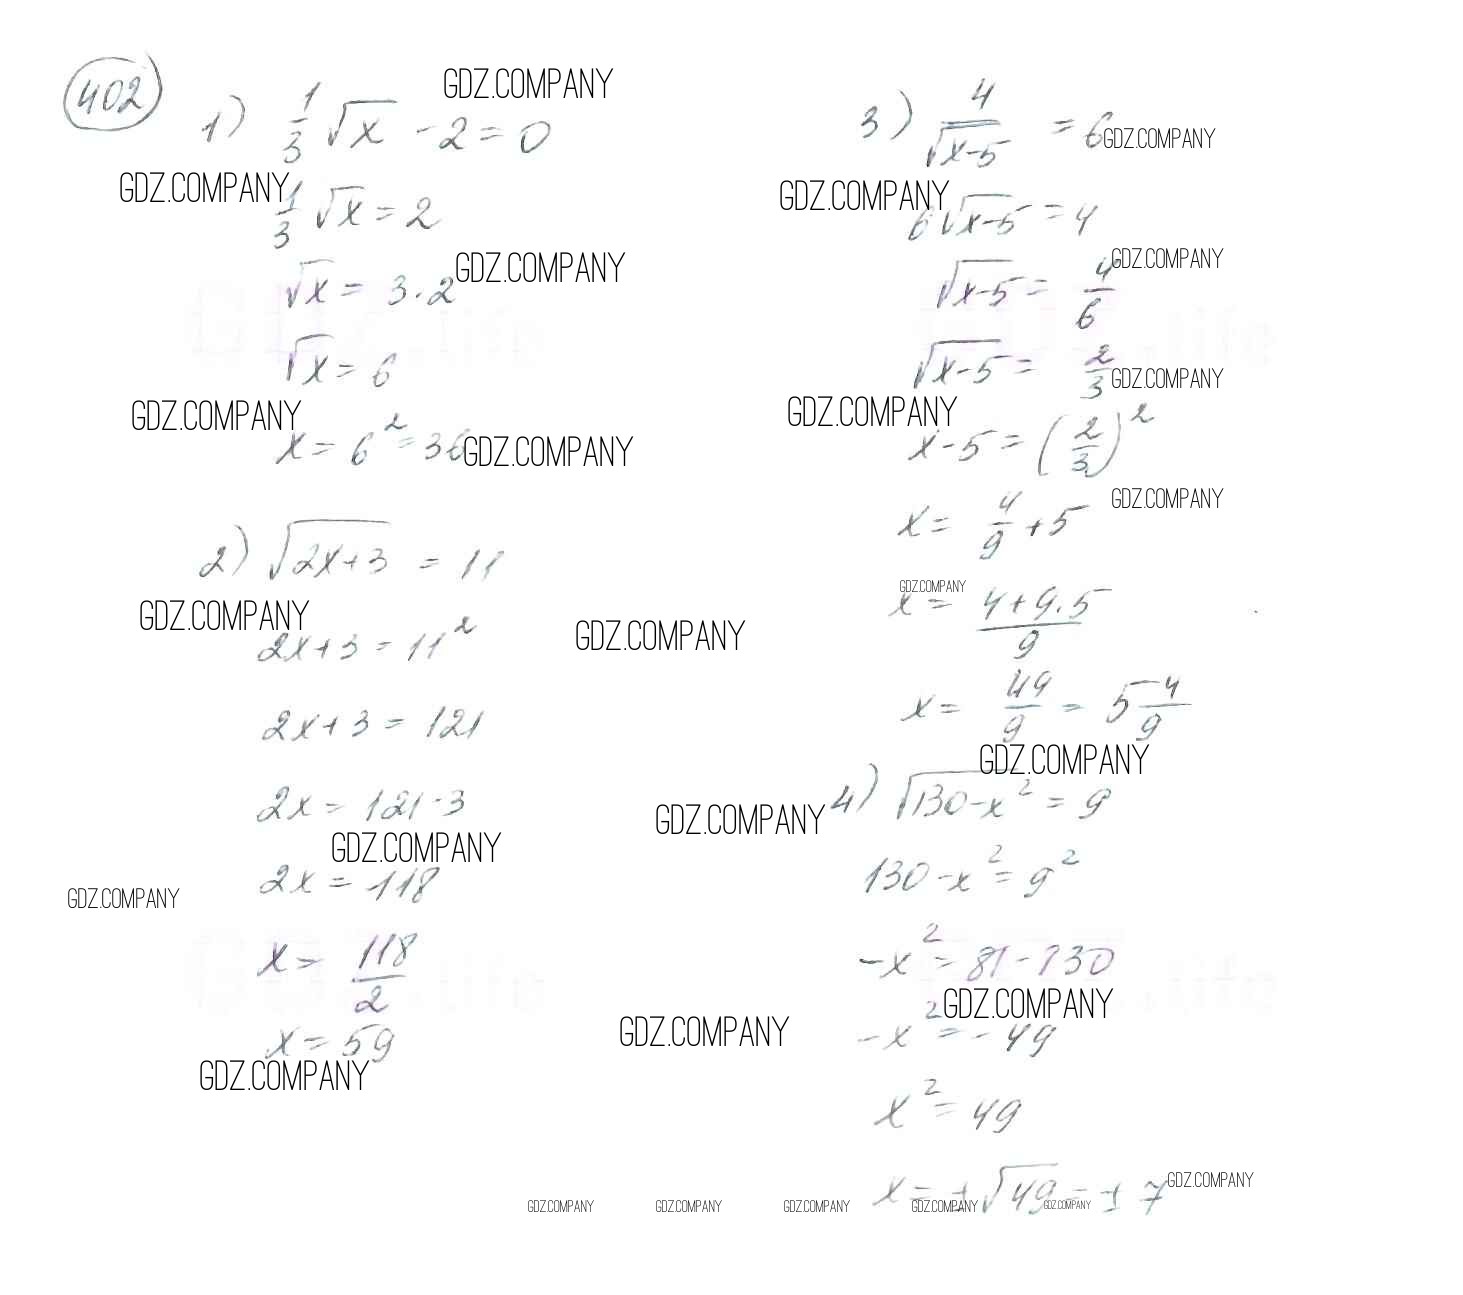 402
1) 1/3 √x - 2 = 0
GDZ.COMPANY
GDZ.COMPANY
1/3 √x = 2
GDZ.COMPANY
√x = 3·2
√x = 6
GDZ.COMPANY
x = 6² = 36
GDZ.COMPANY
2) √(2x+3) = 11
GDZ.COMPANY
2x+3 = 11²
GDZ.COMPANY
2x+3 = 121
2x = 121-3
GDZ.COMPANY
GDZ.COMPANY
2x = 118
GDZ.COMPANY
x = 118/2
x = 59
GDZ.COMPANY
GDZ.COMPANY
3) 4/√(x-5) = 6
GDZ.COMPANY
GDZ.COMPANY
6√(x-5) = 4
GDZ.COMPANY
√(x-5) = 4/6
√(x-5) = 2/3
GDZ.COMPANY
GDZ.COMPANY
x-5 = (2/3)²
GDZ.COMPANY
x = 4/9 + 5
GDZ.COMPANY
x = (4+9·5)/9
x = 49/9 = 5 4/9
GDZ.COMPANY
4) √(130-x²) = 9
130-x² = 9²
-x² = 81-130
GDZ.COMPANY
-x² = -49
x² = 49
x = ±√49 = ±7
GDZ.COMPANY
GDZ.COMPANY
GDZ.COMPANY
GDZ.COMPANY
GDZ.COMPANY
GDZ.COMPANY
GDZ.life
GDZ.life
GDZ.life
GDZ.life